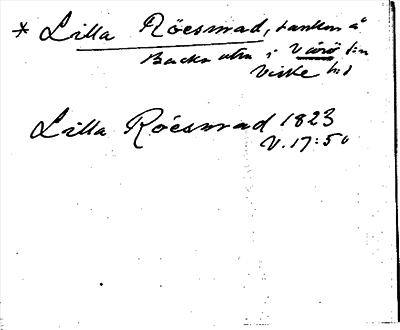 * Lilla Röesmad, tanken å
Backa utm i Värö sn
Viske hd
Lilla Röesmad 1823
V. 17:50